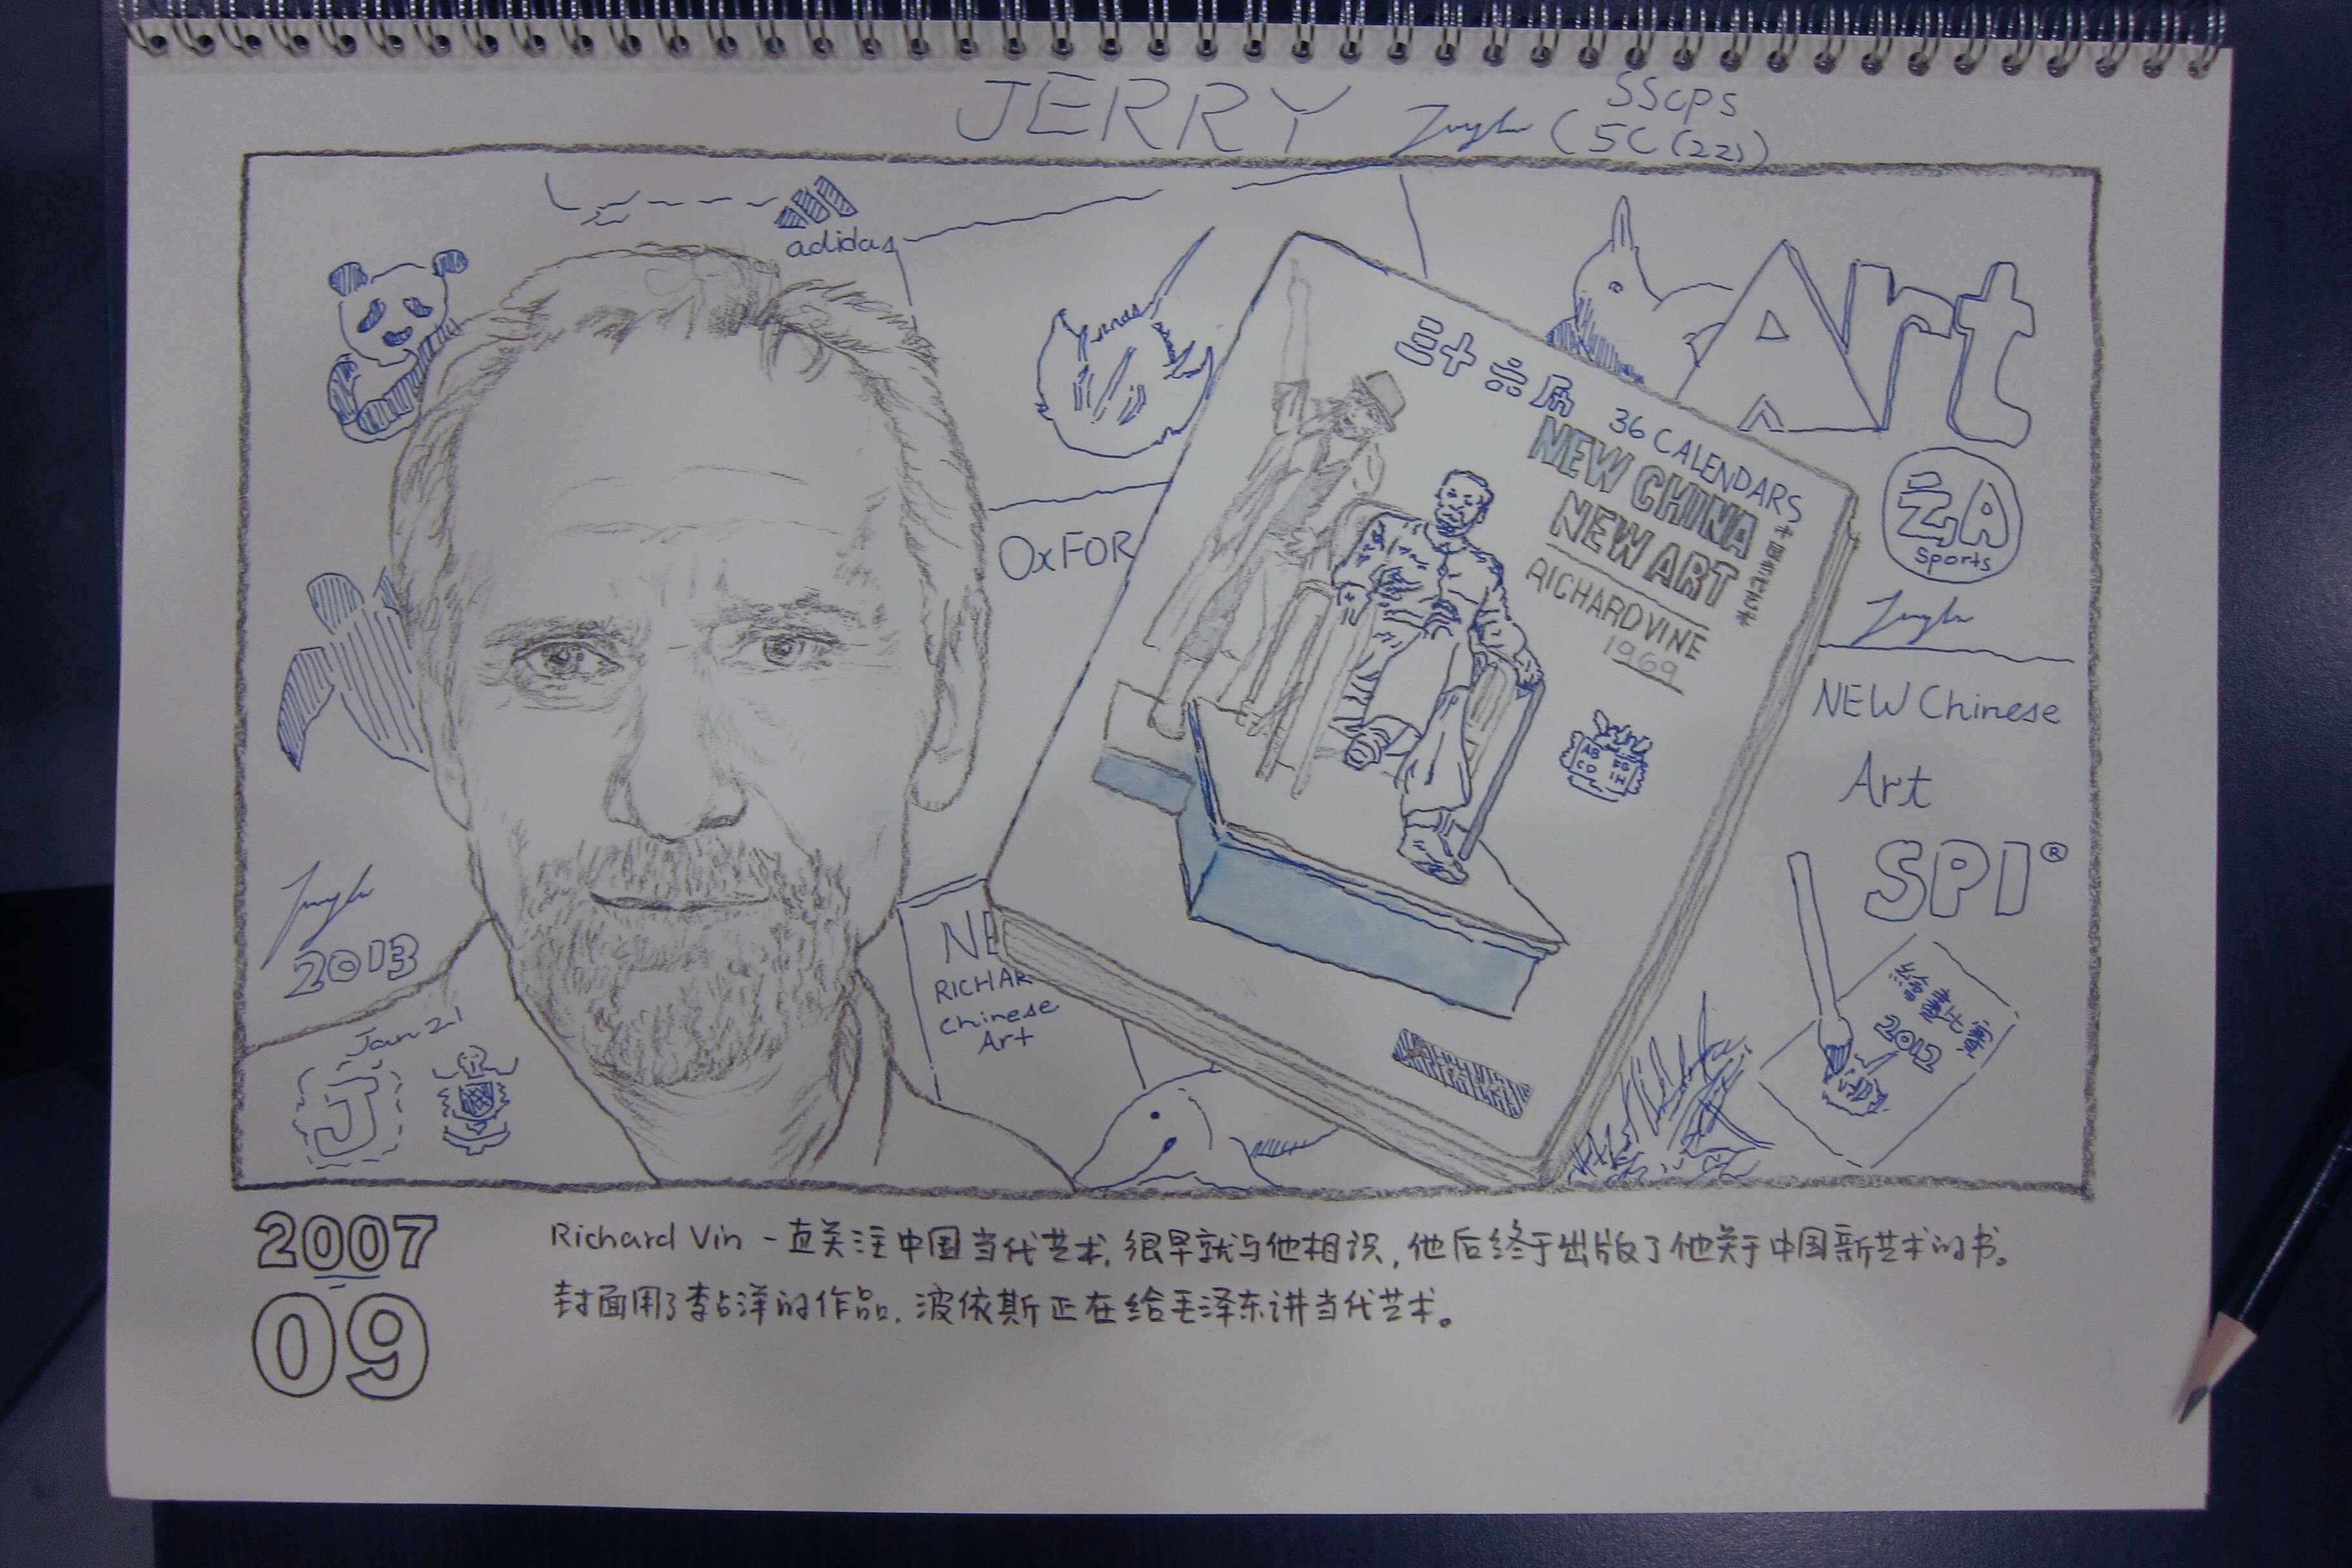 JERRY
SSCPS
(5C (22))
adidas
Art
三十六历
36 CALENDARS
NEW CHINA
NEW ART
RICHARD VINE
1969
AB
CD
OxFOR
云A
Sports
NEW Chinese
Art
SPI®
NE
RICHAR
Chinese
Art
2013
Jan 21
J
繪畫比賽
2012
2007
09
Richard Vin 一直关注中国当代艺术,很早就与他相识,他后终于出版了他关于中国新艺术的书。
封面用了李占洋的作品,波依斯正在给毛泽东讲当代艺术。